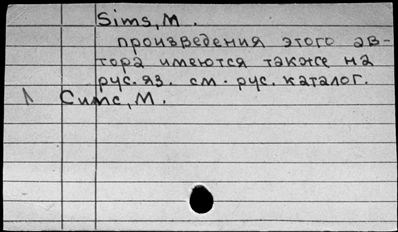 Sims, M.
произведения этого ав-
тора имеются также на
рус. яз. см. рус. каталог.
Симс, М.